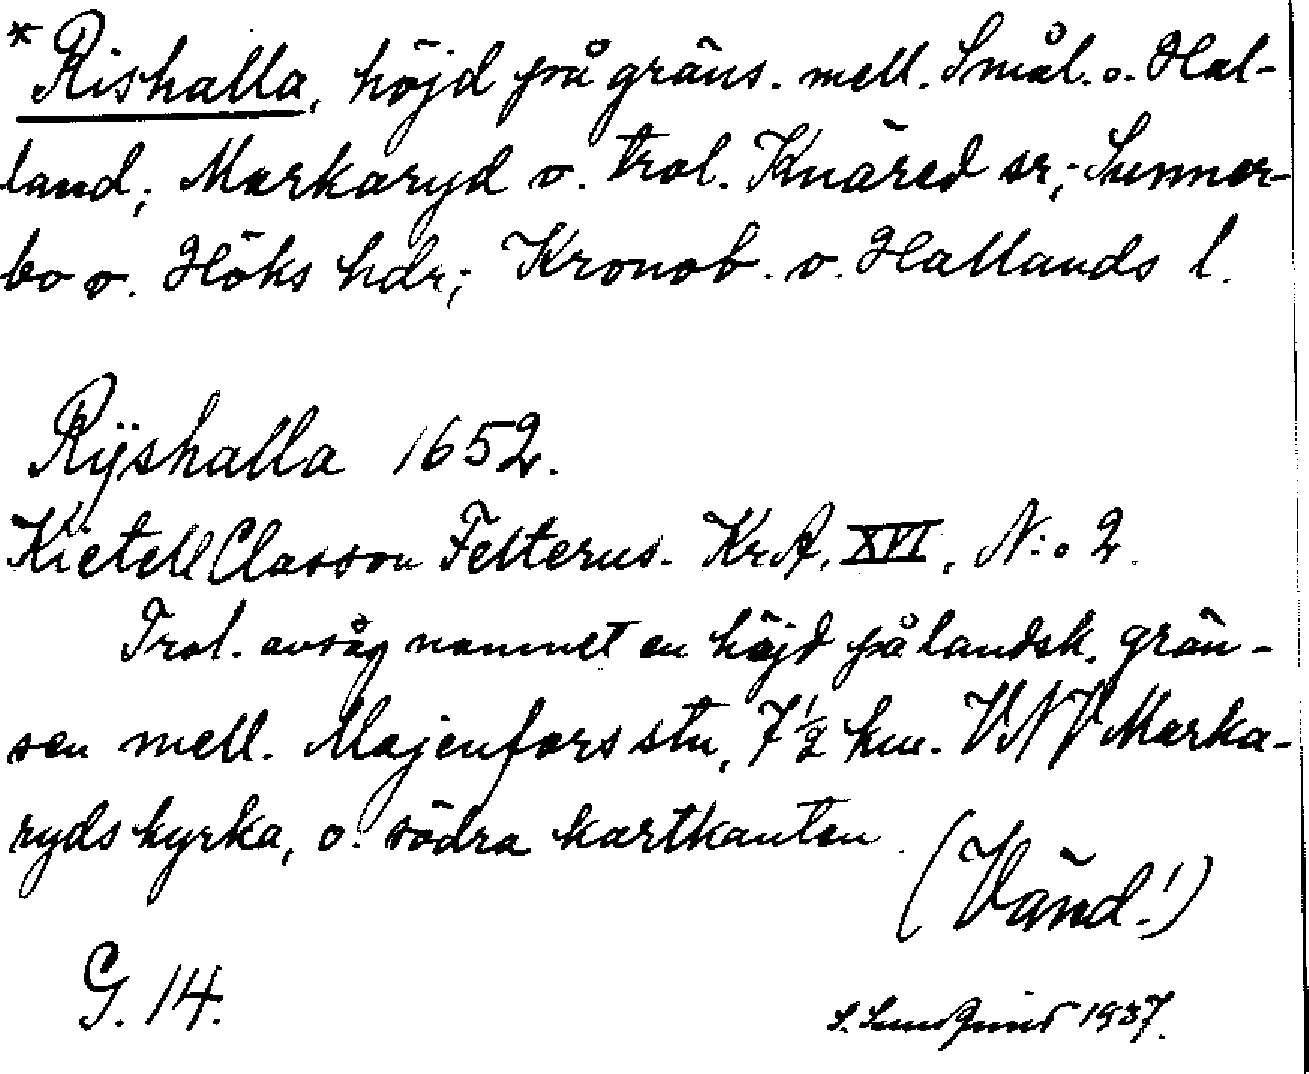 * Rishalla, höjd på gräns. mell. Smål. o. Hal-
land; Markaryd o. trol. Knäred sr; Sunner-
bo o. Höks hdr; Kronob. o. Hallands l.
Rÿshalla 1652.
Kietell Classon Felterus. Kr.A. XVI, N:o 2.
Trol. avsåg namnet en höjd på landsk. grän-
sen mell. Majenfors stn, 7 1/2 km. VNV Marka-
ryds kyrka, o. södra kartkanten.
(Vänd!)
G. 14.
S. Sundquist 1937.